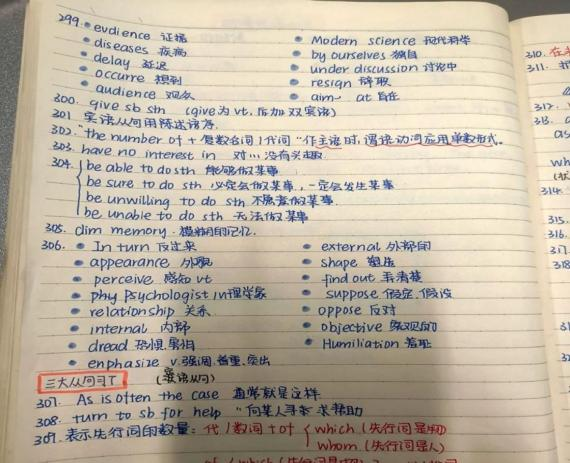 299. • evdience 证据
• diseases 疾病
• delay 延迟
• occurre 想到
• audience 观众
• Modern science 现代科学
• by ourselves 独自
• under discussion 讨论中
• resign 辞职
• aim at 旨在
300. give sb sth (give为vt, 后加双宾语)
301 宾语从句用陈述语序
302. "the number of + 复数名词/代词"作主语时,谓语动词应用单数形式。
303. have no interest in 对...没有兴趣
304. be able to do sth 能够做某事
be sure to do sth 必定会做某事,一定会发生某事
be unwilling to do sth 不愿意做某事
be unable to do sth 无法做某事
305. dim memory 模糊的记忆.
306. • In turn 反过来
• appearance 外貌
• perceive 感知 vt
• phy Psychologist 心理学家
• relationship 关系
• internal 内部
• dread 恐惧
• enphasize v.强调.着重.突出
• external 外部的
• shape 塑造
• find out 弄清楚
• suppose 假定.假设
• oppose 反对
• objective 客观的
• Humiliation 羞耻
三大从句
307. As is often the case 通常就是这样
308. turn to sb for help "向某人寻求帮助
309. 表示先行词的数量: 代/数词+of which (先行词是物)
whom (先行词是人)
310.
311.
312.
313.
314.
315.
316.
317.
318